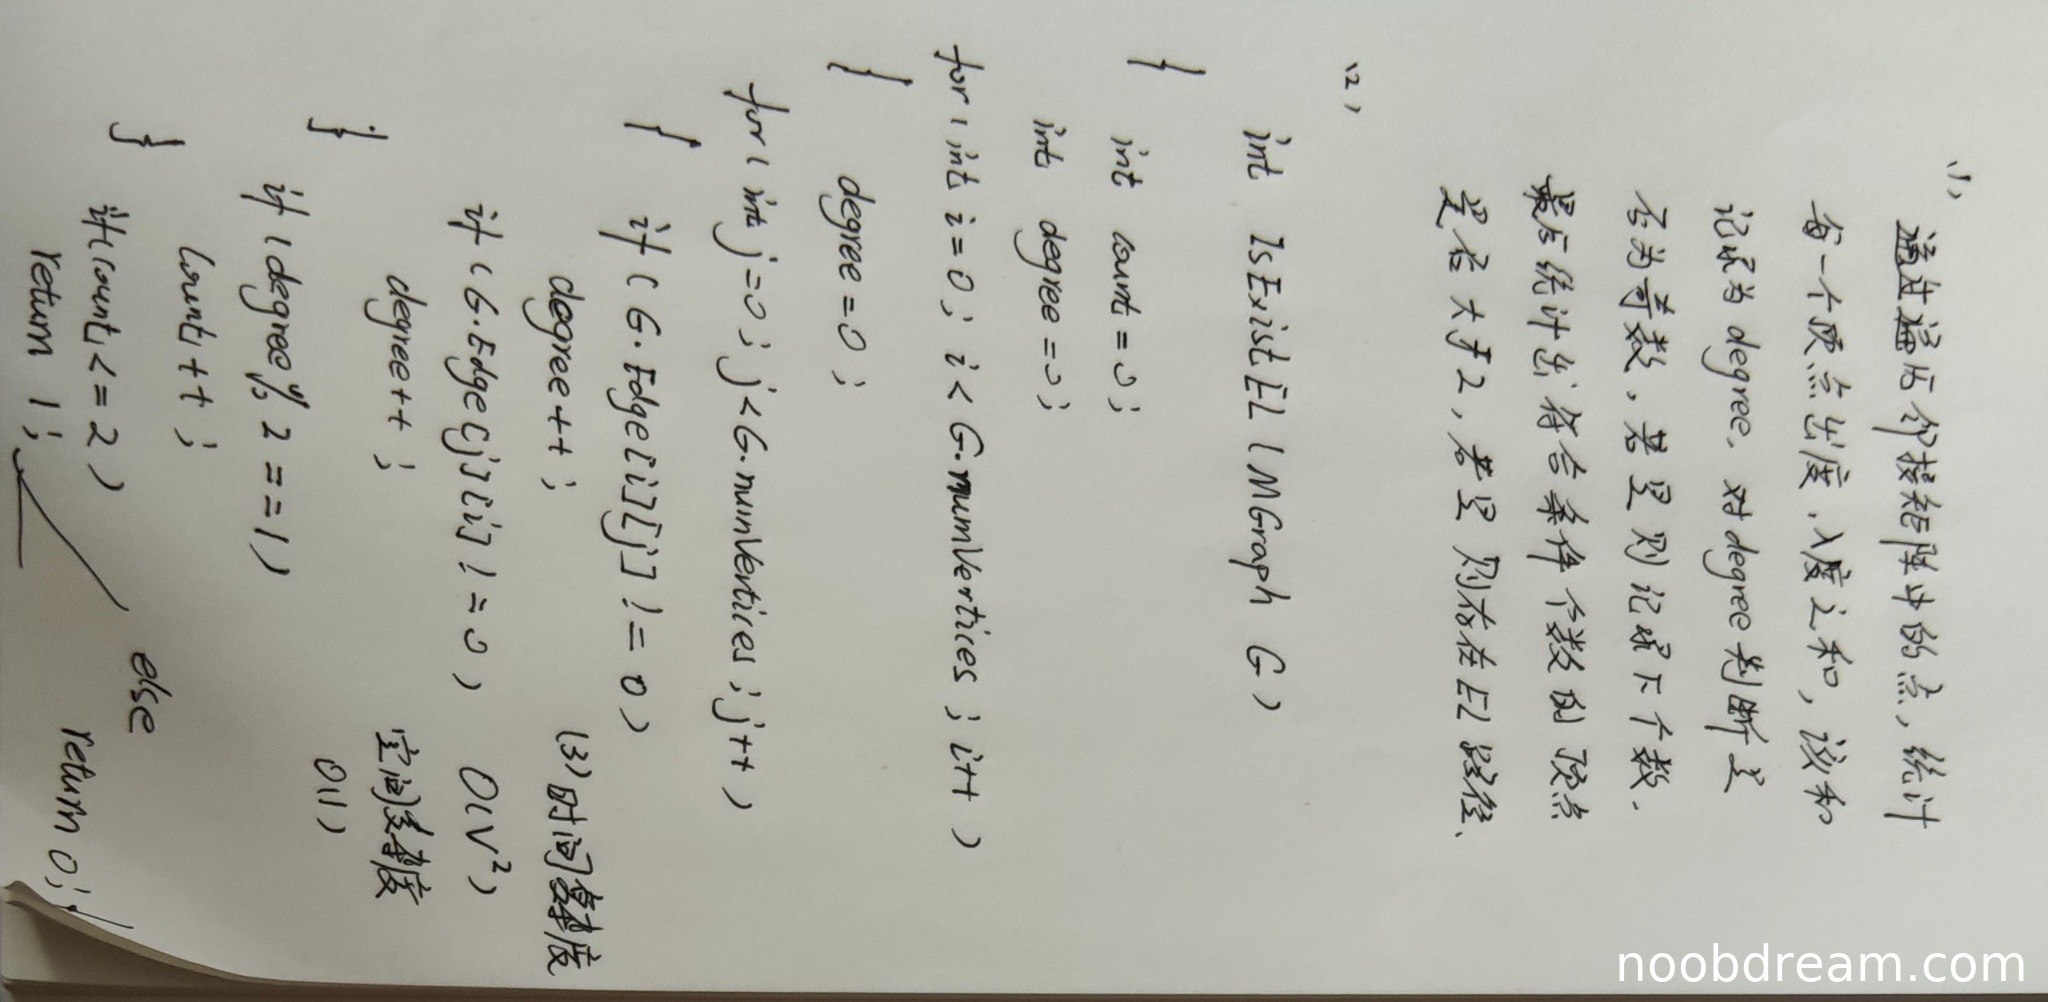 (1)
通过遍历邻接矩阵中的点，统计
每一个顶点出度、入度之和，该和
记录为degree．对degree判断是
否为奇数．若是则记录下个数．
最后统计出符合条件个数的顶点
是否大于2，若是则存在EL路径．
(2)
int IsExistEL (MGraph G)
{ int count = 0;
int degree = 0;
for (int i = 0; i < G.numVertices; i++)
{ degree = 0;
for (int j = 0; j < G.numVertices; j++)
{ if (G.Edge[i][j] != 0)
degree++;
if (G.Edge[j][i] != 0)
degree++;
}
if (degree % 2 == 1)
count++;
}
if (count <= 2)
return 1;
else
return 0;}
(3) 时间复杂度
O(V²)
空间复杂度
O(1)
noobdream.com